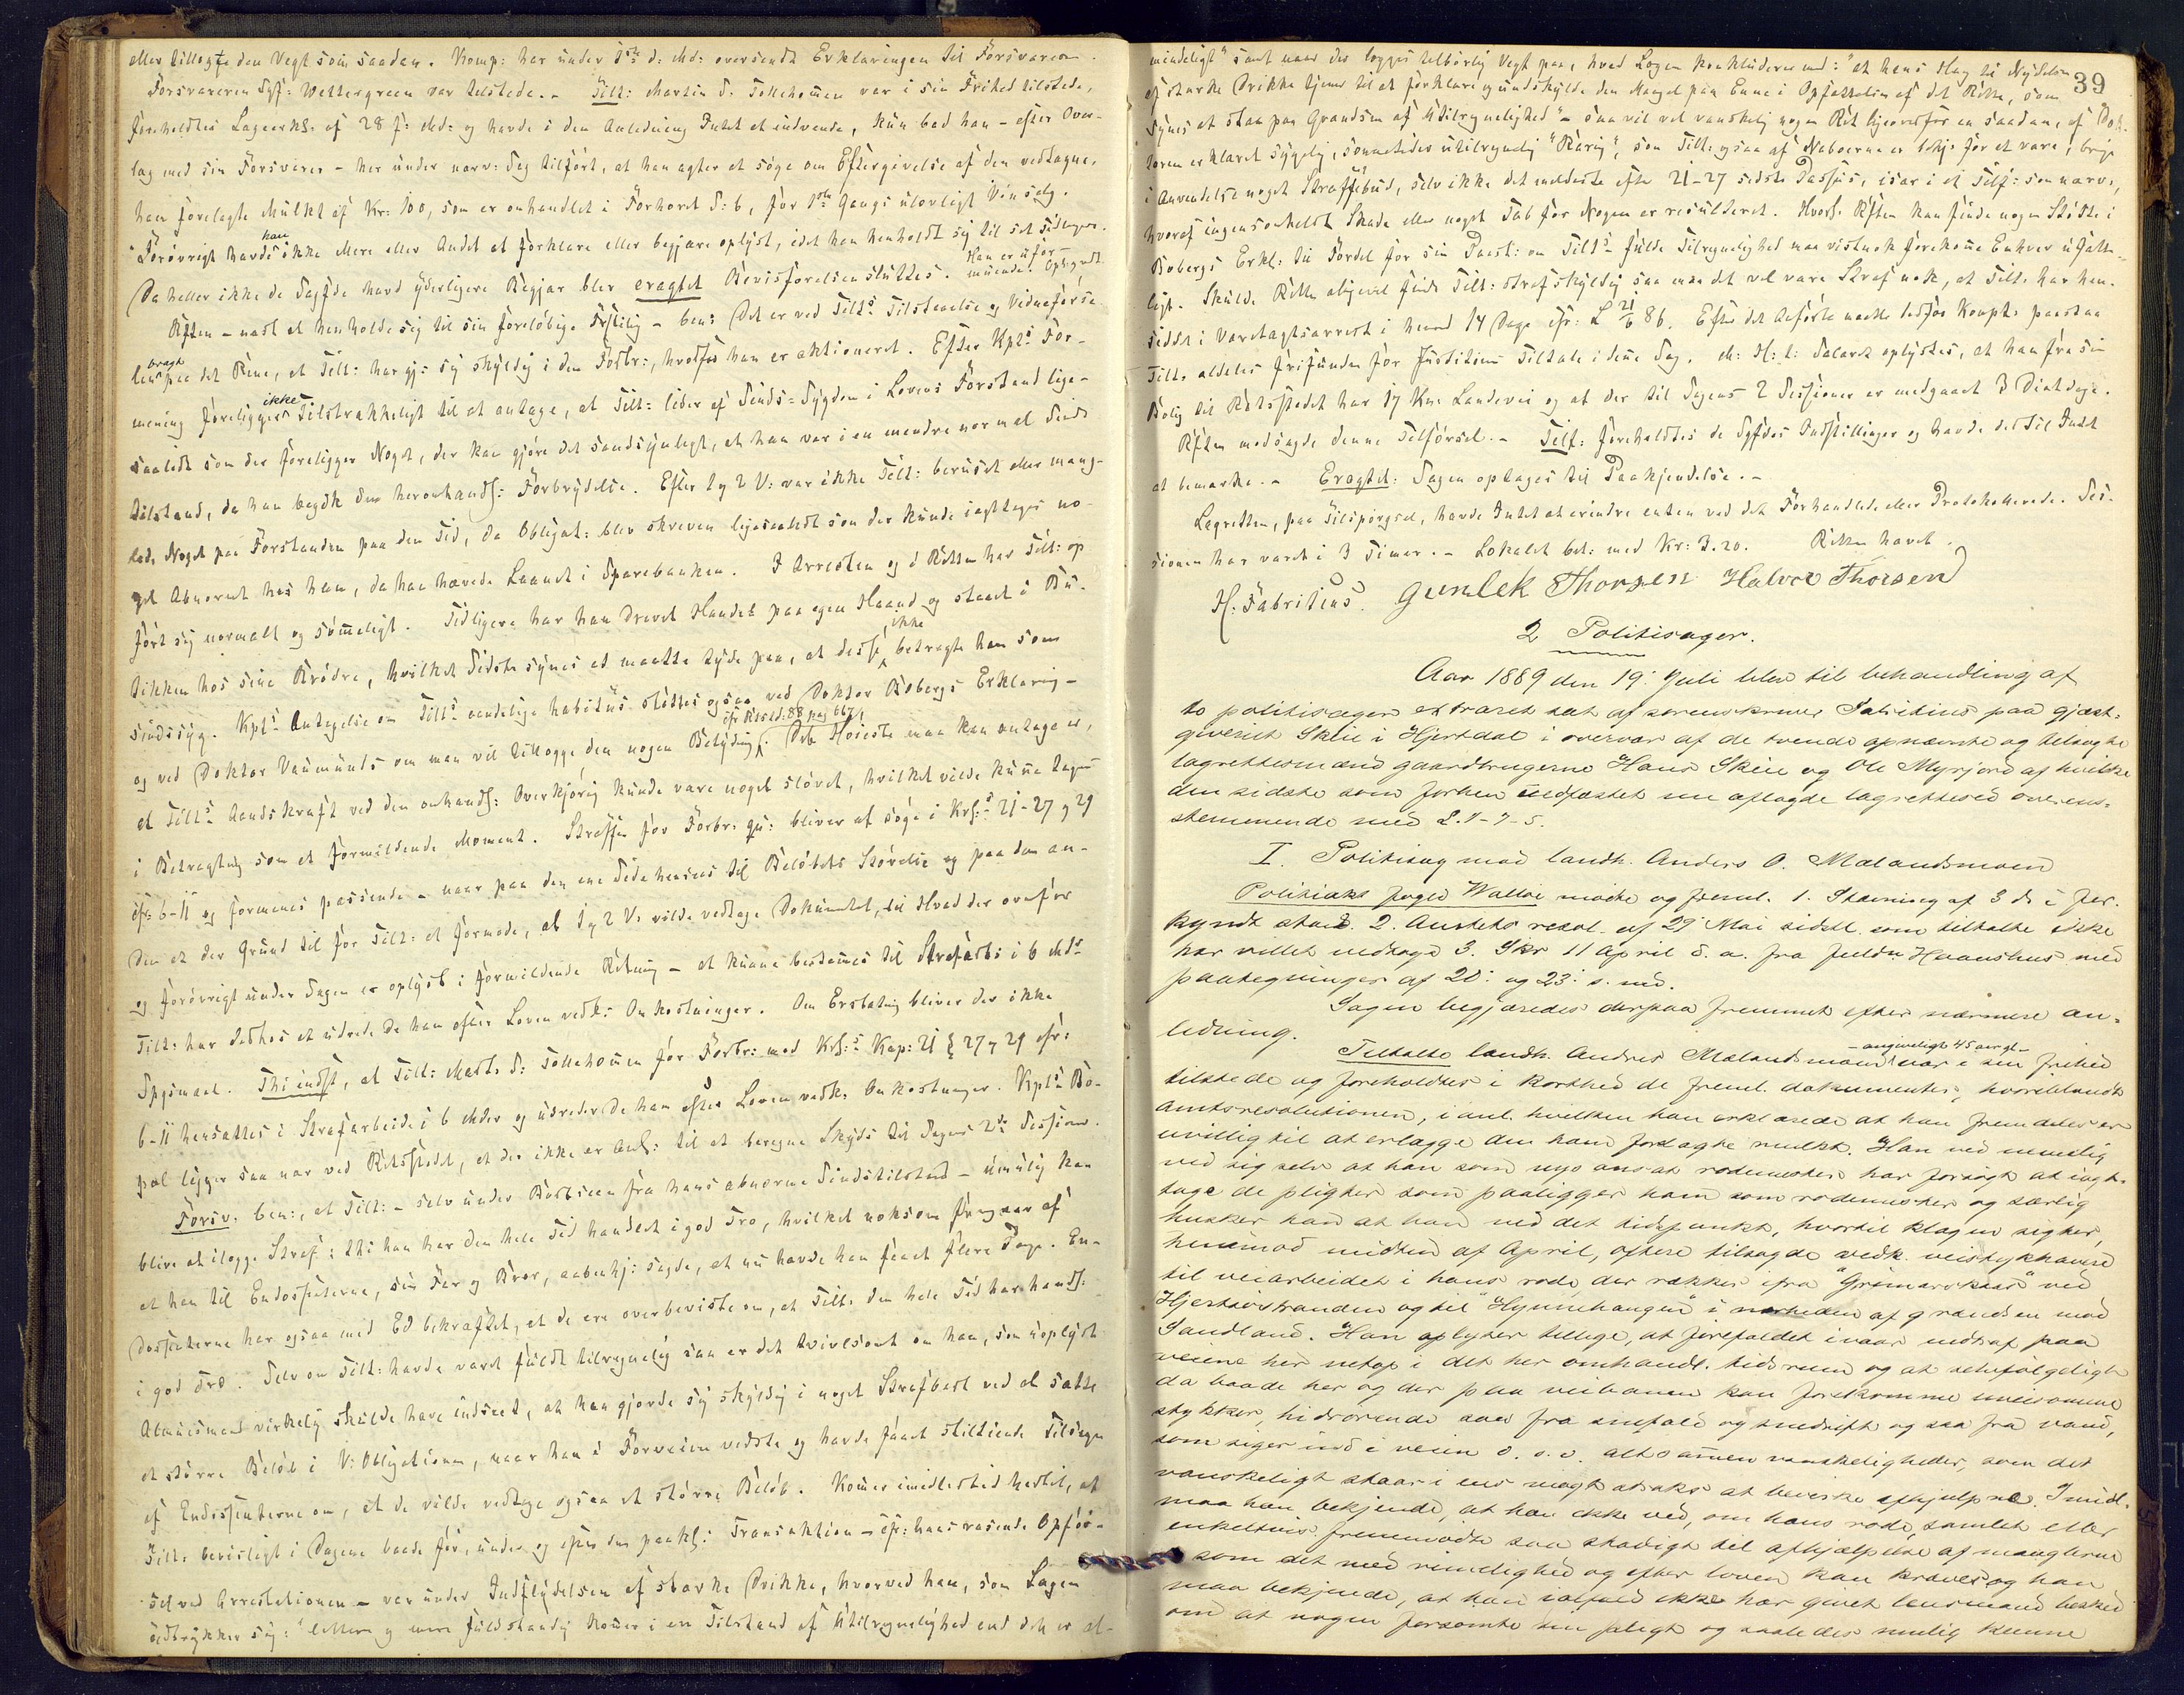 eller tillagte den Vegt som saadan. Komp: har under 1ste d. Md: oversendt Erklæringen til Forsvareren.
Forsvareren Sgf: Wettergreen var tilstede. - Tilt: Martin S. Tollehomen var i sin Frihed tilstede,
foreholdtes Lageerkl: af 28 f: Md: og havde i den Anledning Intet at indvende, kun bad han - efter Over-
lag med sin Forsvarer - her under nærv: Sag tilført, at han agter at søge om Eftergivelse af den vedtagne,
ham forelagte Mulkt af Kr: 100, som er omhandlet i Forhøret S: 6, for 1ste Gangs ulovligt Vinsalg.
Forøvrigt havde han ikke Mere eller Andet at forklare eller begjære oplyst, idet han henholdt sig til sit Tidligere.
Da heller ikke de Sagfde havd yderligere Begjær blev eragtet Bevisførelsen sluttet. Han er ufor- muende. Oplyst
Akften - næst at henholde sig til sin foreløbige Frstllg - bem: Det er ved Tilts Tilstaaelse og Vidneførse-
len bragt paa det Rene, at Tilt: har gj: sig skyldig i den Forbr:, hvorfor han er aktioneret. Efter Kpts For-
mening foreligger ikke Tilstrækkeligt til at antage, at Tilt: lider af Sinds-Sygdom i Lovens Forstand lige-
saalidt som der foreligger Noget, der kan gjøre det sandsynligt, at han var i en mindre normal Sinds
tilstand, da han begik den heromhandl: Forbrydelse. Efter 1 og 2 V: var ikke Tilt: beruset eller mang-
lede Noget paa Forstanden paa den Tid, da Obligat: blev skreven ligesaalidt som der kunde iagttages no-
get Abnormt hos ham, da han hævede Laanet i Sparebanken. I Arresten og i Retten har Tilt: op
ført sig normalt og sømeligt. Tidligere har han drevet Handel paa egen Haand og staaet i Bu-
tikken hos sine Brødre, hvilket Sidste synes at maatte tyde paa, at disse ikke betragte ham som
sindssyg. Kpts Antagelse om Tilts aandelige habitus støttes ogsaa ved Doktor Bobergs Erklæring -
og ved Doktor Vaumunds om man vil tillægge den nogen Betydning cfr Rtstd: 88 pag 667. Det Høieste man kan antage er,
at Tilts Aandskraft ved den omhandl: Overkjørig kunde være noget sløvet, hvilket vilde kunne tages
i Betragtning som et formildende Moment. Straffen for Forbr: qu: bliver at søge i Krl:s 21-27 og 29
cfr: 6-11 og formenes passende - naar paa den ene Side henses til Beløbets Størrelse og paa den an-
den at der Grund til for Tilt: at formode, at 1 og 2 V: vilde vedtage Dokumtet, til Hvad der ovenfor
og forøvrigt under Sagen er oplyst i formildende Retning - at kunne bestemmes til Strafarb: i 6 Mdr
Tilt: har desthos at udrede de ham efter Loven vedk: Omkostninger. Om Erstatnig bliver der ikke
Spgsmaal. Thi indst, at Tilt: Mart. S: Tollehomen for Forbr: mod Krl:s Kap: 21 § 27 og 29 cfr:
6-11 hensættes i Strafarbeide i 6 Mdr og udreder de ham efter Loven vedk: Omkostninger. Kpts Bo-
pæl ligger saa nær ved Retsstedet, at der ikke er Anl: til at beregne Skyds til Sagens 2de Sessioner.
Forsv: bem:, at Tilt: - selv under Bortseen fra hans abnorme Sindstilstand - umulig kan
blive at ilægge Straf: thi han har den hele Tid handlet i god Tro, hvilket noksom fremgaar af
at han til Endossenterne, sin Far og Bror, aabenhj: sagde, at nu havde han faaet flere Penge. En-
dossenterne har ogsaa med Ed bekræftet, at de ere overbeviste om, at Tilt: den hele Tid har handl:
i god Tro. Selv om Tilt: havde været fuldt tilregnelig saa er det tvivlsomt om han, som uoplyst
Almuesmand virkelig skulde have indseet, at han gjorde sig skyldig i noget Strafbart ved at sætte
et større Beløb i V: Obligationen, naar han i Forveien vidste og havde faaet stiltiende Tilsagn
af Endossenterne om, at de vilde vedtage ogsaa et større Beløb. Kommer imidlertid hertil, at
Tilt: bevisligt i Dagene baade før, under og efter den paakl: Transaktion - cfr: hans rasende Opfør-
sel ved Arrestationen - var under Indflydelsen af stærke Drikke, hvorved han, som Lægen
udtrykker sig: "lettere og mere fuldstændig kommer i en Tilstand af Utilregnelighed end det er al-
39
mindeligt" samt naar der lægges tilbørlig Vegt paa, hvad Lægen konkluderer med: "at hans Hag til Nydelse
af stærke Drikke tjener til at forklare og undskylde den Mangel paa Evne i Opfattelse af det Rette, som
synes at staa paa Grændsen af Utilregnelighed" - saa vil vel vanskelig nogen Ret ligeoverfor en saadan, af Dok-
toren erklæret sygelig, sommetider utilregnelig "Raring", som Tilt: ogsaa af Naboerne er bekj: for at være, bringe
i Anvendelse noget Straffebud, selv ikke det mildeste efter 21-27 sidste Passus, især i et Tilf: som nærv:,
hvoraf ingensomhelst Skade eller noget Tab for Nogen er resulteret. Hvorl: Akften kan finde nogen Støtte i
Bobergs Erkl: til Fordel for sin Paast: om Tilts fulde Tilregnelighed maa vistnok forekomme Enhver ufatte-
ligt. Skulde Retten alligevel finde Tilt: strafskyldig saa maa det vel være Straf nok, at Tilt: har hen-
siddet i Varetægtsarrest i henved 14 Dage cfr: L 21/6 86. Efter det Anførte maatte ledsfør Kompt: paastaa
Tilt: aldeles frifunden for Justitiens Tiltale i denne Sag. M: H: t: Salæret oplystes, at han fra sin
Bolig til Retsstedet har 17 Km: Landevei og at der til Sagens 2 Sessioner er medgaaet 3 Diætdage.
Akften modsagde denne Tilførsel. - Tilt: foreholdtes de Sgfdes Indstillinger og havde dertil Intet
at bemærke. - Eragtet: Sagen optages til Paakjendelse. -
Lagretten, paa Tilspørgsel, havde Intet at erindre enten ved det Forhandlede eller Protokollerede. Ses-
sionen har varet i 3 Timer. - Lokalet bet: med Kr: 3.20. Retten hævet.
H. Fabritius. Gunlek Thorsen Halvor Thorsen
2 Politisager.
Aar 1889 den 19. Juli blev til behandling af
to politisager extraret sat af sorenskriver Fabritius paa gjæst-
giveriet Skeie i Hjertdal i overvær af de tvende opnævnte og tilsagte
lagrettesmænd gaardbrugerne Hans Skeie og Ole Myrjord af hvilke
den sidste som forhen uedfæstet nu aflagde lagretteed overens-
stemmende med L. 1-7-5.
I. Politisag mod landh. Anders O. Mælandsmoen
Politiakt: foged Walløe mødte og freml. 1. Stævning af 3 ds i for-
kyndt stand. 2. Amtets resol. af 29 Mai sidstl. som tiltalte ikke
har villet vedtage 3. Skr 11 April d. a. fra fuldm Haanshus med
paategninger af 20. og 23. s. md.
Sagen begjæredes derpaa fremmet efter nærmere an-
ledning.
Tiltalte landh. Anders Mælandsmoen - angiveligt 45 aar gl - var i sin frihed
tilstede og foreholdtes i korthed de freml. dokumenter, hvoriblandt
Amtsresolutionen, i anl. hvilken han erklærede at han fremdeles er
uvillig til at erlægge den ham forelagte mulkt. Han ved nemlig
ved sig selv at han som nys ansat rodemester har forsøgt at iagt-
tage de pligter som paaligger ham som rodemester og særlig
husker han at han ved det tidspunkt, hvortil klagen sigter,
henimod midten af April, oftere tilsagde vedk. veistykkhavere
til veiarbeidet i hans rode, der rækker ifra "Grimarskaar" ved
Hjertsøstranden og til "Hynnehaugen" i nærheden af grændsen mod
Sandland. Han oplyser tillige, atførefaldet ivaar indtraf paa
veiene her netop i det her omhandl. tidsrum og at selvfølgeligt
da baade her og der paa veibanen kan forekomme uveisomme
stykker, hidrørende saa fra snefald og snedrift og saa fra vand,
som siger ind i veien o. s. v. altsammen vanskeligheder, som det
vanskeligt staar i ens magt straks at bevirke afhjulpne. Imidl.
maa han bekjende, at han ikke ved, om hans rode, samlet eller
enkeltvis, fremmødte saa skadigt til afhjælpelse af manglerne
som det med rimelighed og efter loven kan kræves og han
maa bekjende, at han ialfald ikke har givet lensmand besked
om at nogen forsømte sin pligt og saaledes mulig kunne